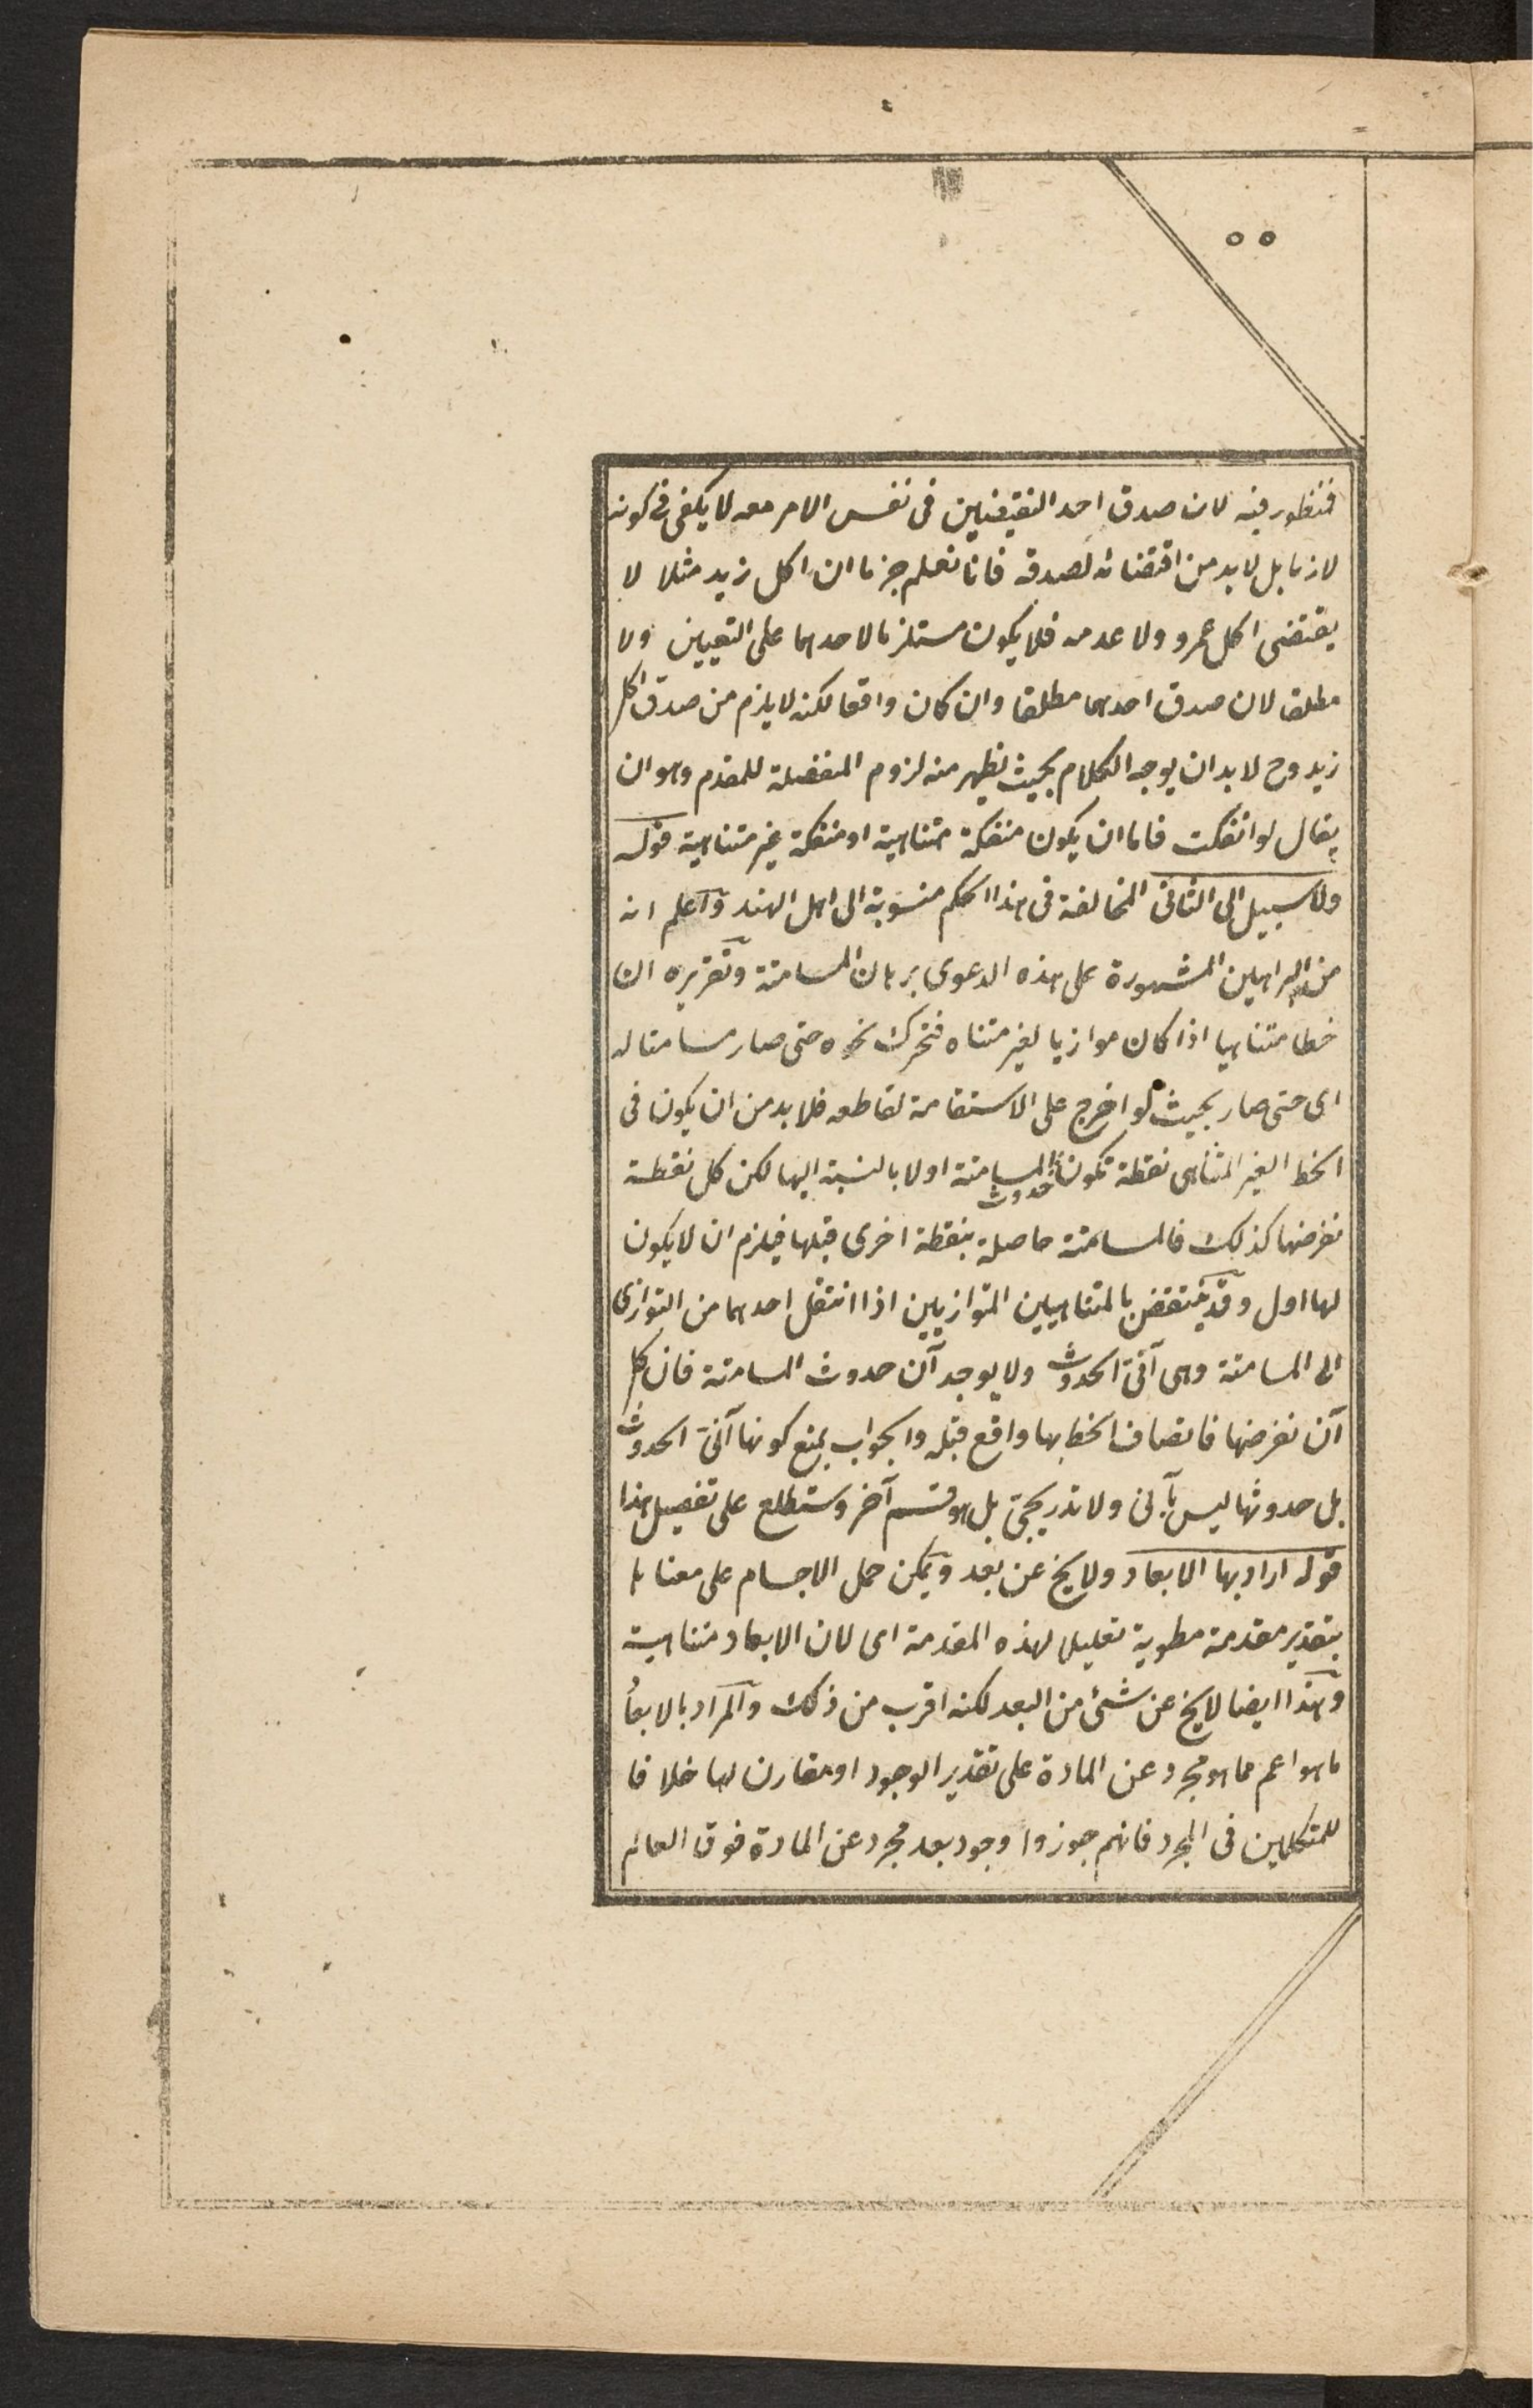 ٥٥
فمنظور فيه لان صدق احد النقيضين فى نفس الامر معه لا يكفى فى كونه
لازما بل لا بد من اقتضائه لصدقه فانا نعلم جزما ان اكل زيد مثلا لا
يقتضى اكل عمرو ولا عدمه فلا يكون مستلزما لاحدهما على التعيين ولا
مطلقا لان صدق احدهما مطلقا وان كان واقعا لكنه لا يلزم من صدق اكل
زيد وح لا بد ان يوجه الكلام بحيث يظهر منه لزوم المنفصلة للمقدم وهو ان
يقال لو انفكت فاما ان يكون منفكة متناهية او منفكة غير متناهية قوله
ولا سبيل الى الثانى المخالفة فى هذا الحكم منسوبة الى اهل الهند واعلم انه
من البراهين المشهورة على هذه الدعوى برهان المسامتة وتقريره ان
خطا متناهيا اذا كان موازيا لغير متناه فتحرك نحوه حتى صار مسامتا له
اى حتى صار بحيث لو اخرج على الاستقامة لقاطعه فلا بد من ان يكون فى
الخط الغير المتناهى نقطة تكون حدوث المسامتة اولا بالنسبة اليها لكن كل نقطة
نفرضها كذلك فالمسامتة حاصلة بنقطة اخرى قبلها فيلزم ان لا يكون
لها اول وقد ينتقض بالمتناهيين المتوازيين اذا انتقل احدهما من التوازى
الى المسامتة وهى آنى الحدوث ولا يوجد آن حدوث المسامتة فان كل
آن نفرضها فاتصاف الخط بها واقع قبله والجواب بمنع كونها آنى الحدوث
بل حدوثها ليس بآنى ولا تدريجى بل هو قسم آخر وستطلع على تفصيل هذا
قوله اراد بها الابعاد ولا يخ عن بعد ويمكن حمل الاجسام على معناها
بتقدير مقدمة مطوية تعليل لهذه المقدمة اى لان الابعاد متناهية
وهذا ايضا لا يخ عن شئ من البعد لكنه اقرب من ذلك والمراد بالابعاد
ما هو اعم مما هو مجرد عن المادة على تقدير الوجود او مقارن لها خلافا
للمتكلمين فى المجرد فانهم جوزوا وجود بعد مجرد عن المادة فوق العالم